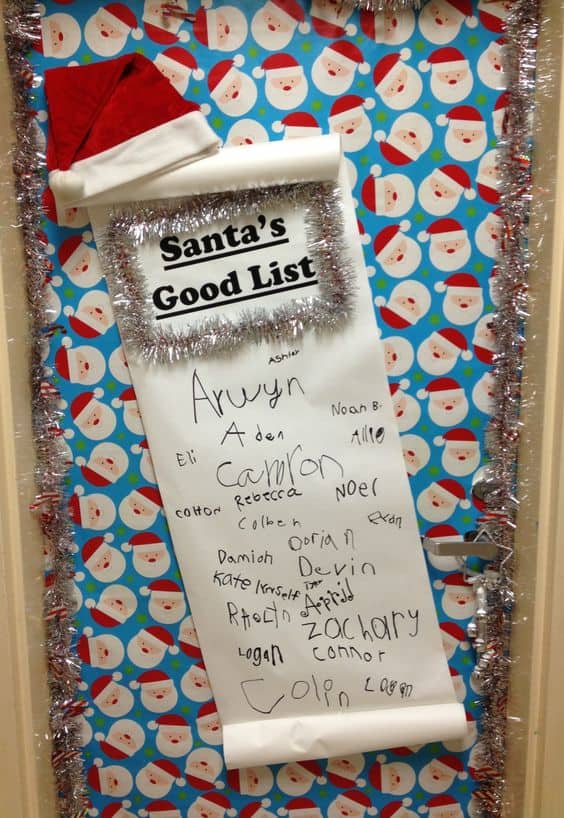 Santa's
Good List
Ashley
Arwyn
Noah B.
Aden
Allie
Eli
Camron
Rebecca
Noel
Colton
Colben
Evan
Dorian
Damion
Devin
Kate
Zachary
Logan
Connor
Colin
Logan